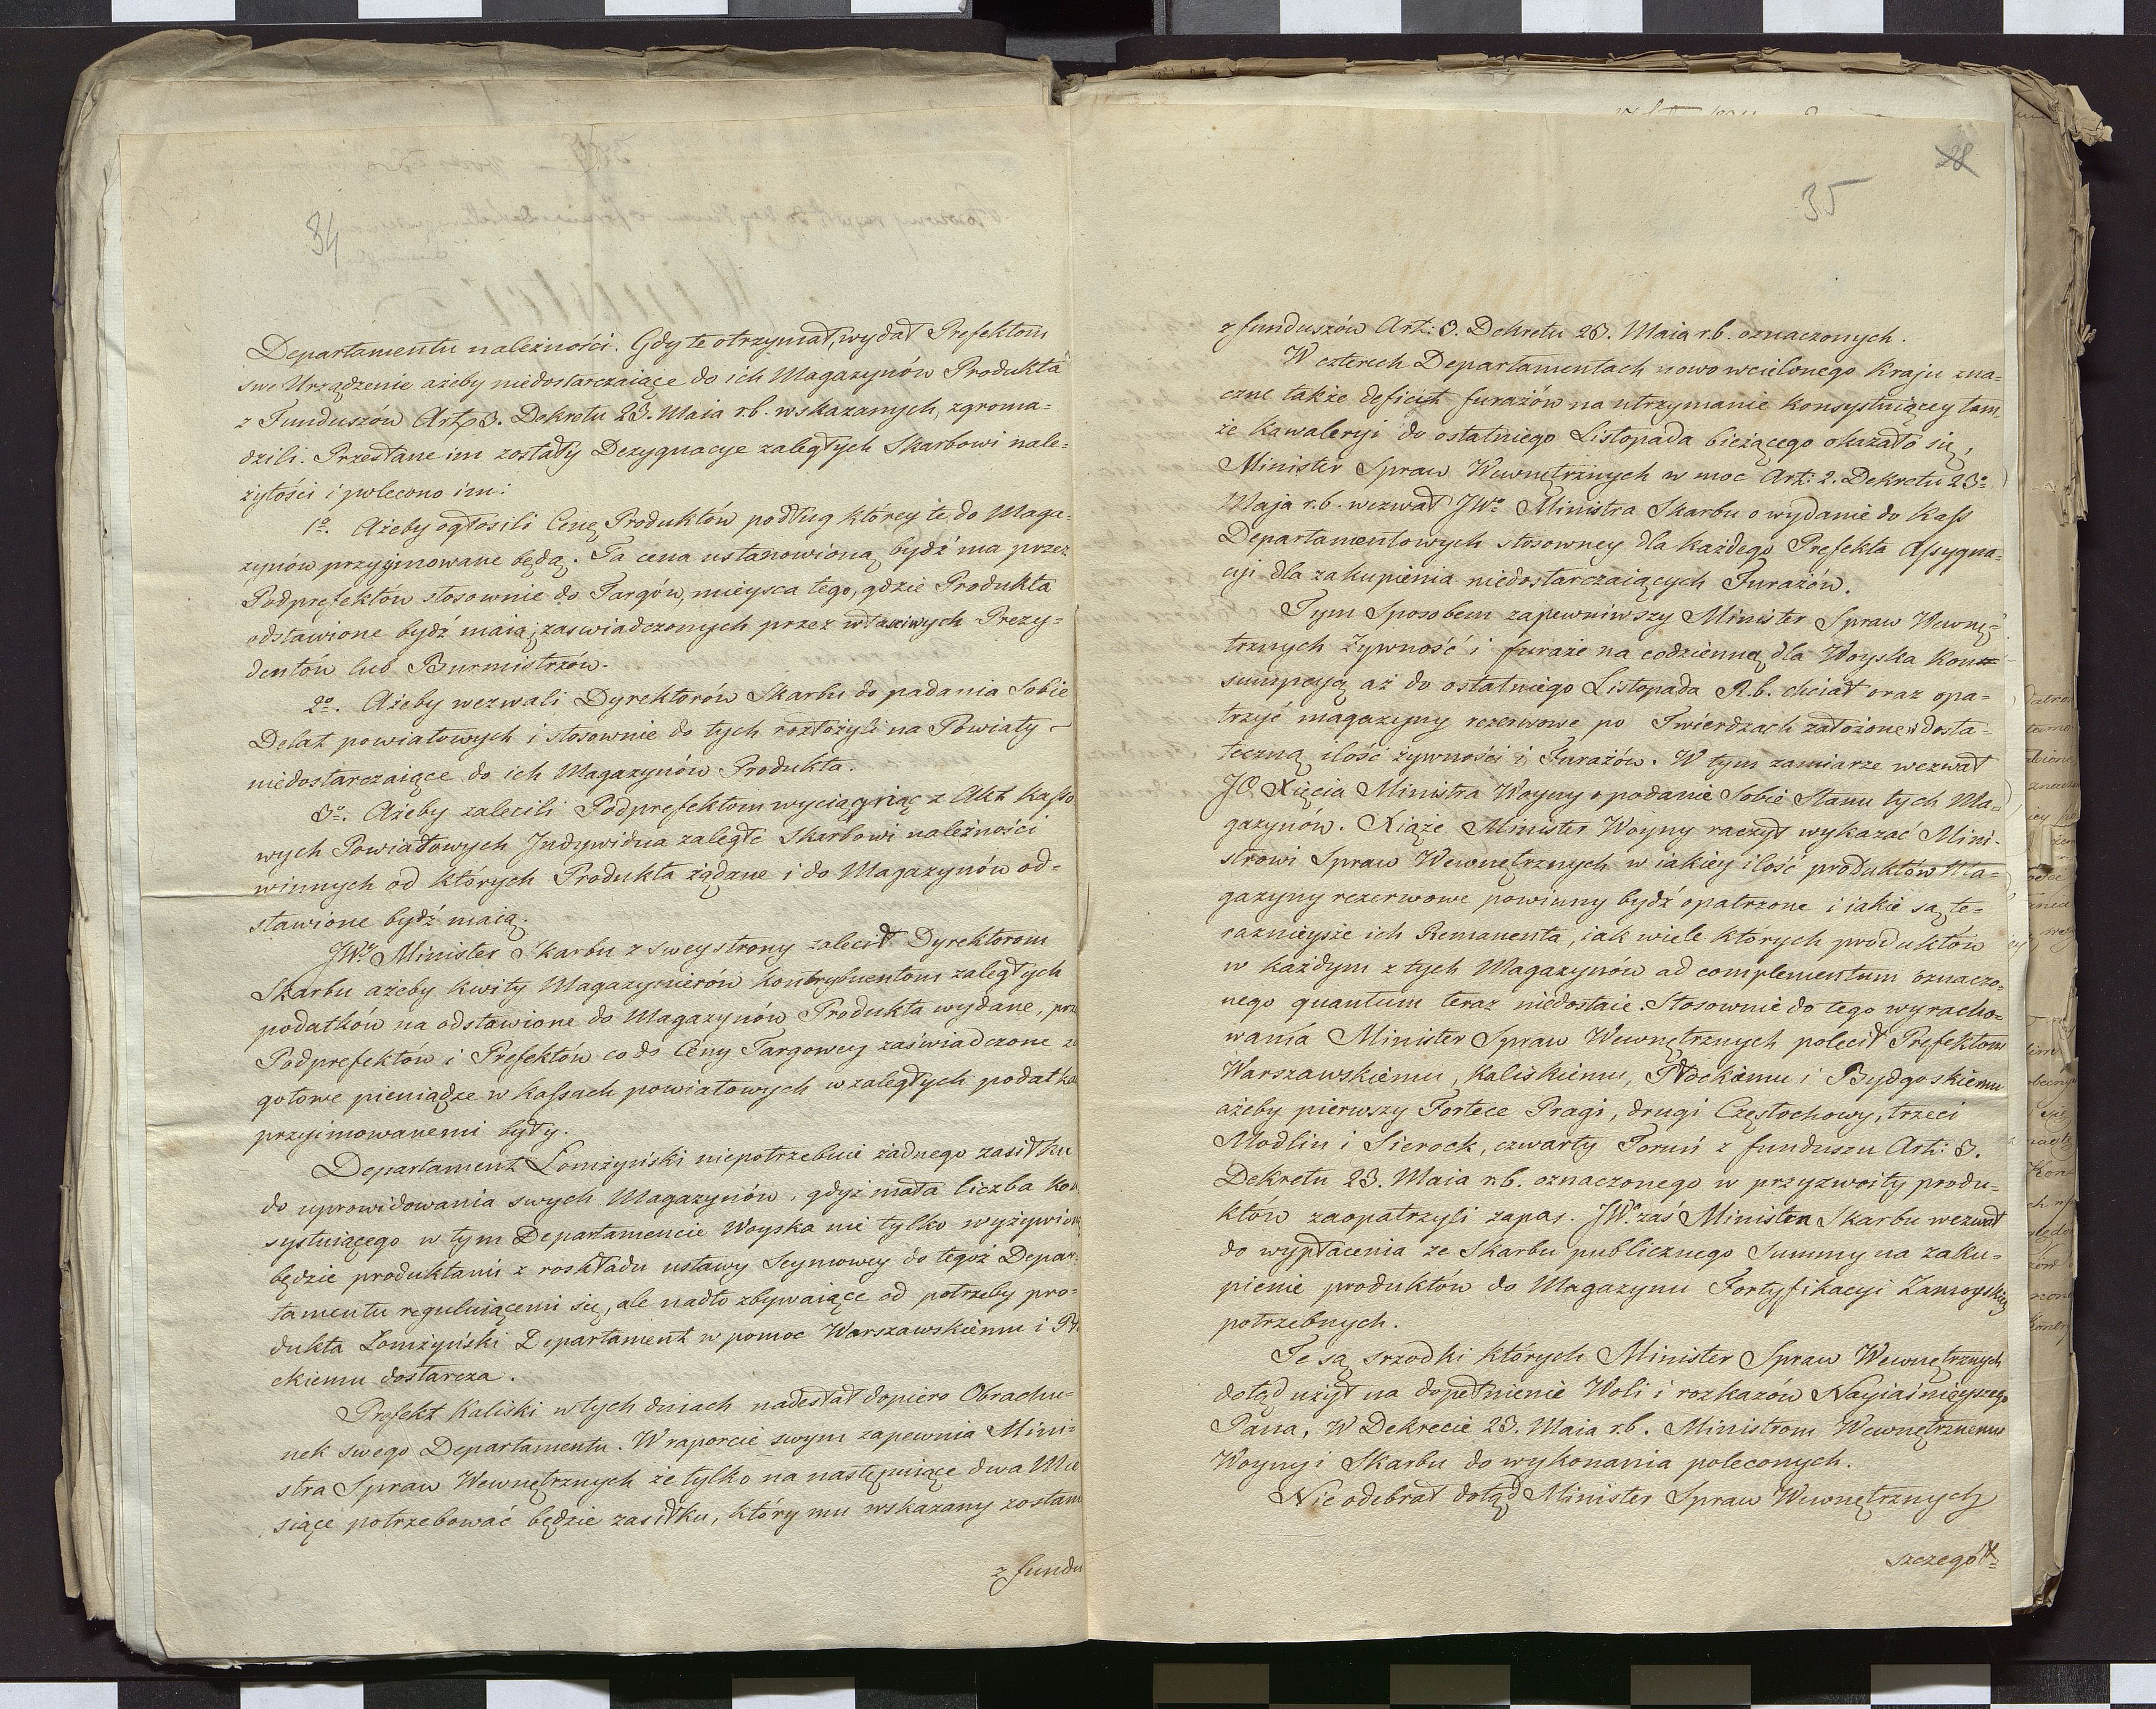 34
Departamentu należności. Gdy te otrzymał, wydał Prefektom
swe Urządzenie ażeby niedostarczaiące do ich Magazynów Produkta
z Funduszów Art. 3. Dekretu 23. Maia r.b. wskazanych, zgroma=
dzili. Przesłane im zostały Dezygnacye zaległych Skarbowi nale=
żytości i polecono im:
1o. Ażeby ogłosili Cenę Produktów podług którey te do Maga=
zynów przyimowane będą. Ta cena ustanowioną bydź ma przez
Podprefektów stosownie do Targów, mieysca tego, gdzie Produkta
odstawione bydź maią; zaswiadczonych przez właściwych Prezy=
dentów lub Burmistrzów.
2o. Ażeby wezwali Dyrektorów Skarbu do padania Sobie
Delat powiatowych i stosownie do tych rozłożyli na Powiaty –
niedostarczaiące do ich Magazynów Produkta.
3o. Ażeby zalecili Podprefektom wyciągniąc z Akt Kasso
wych Powiatowych Indywidua zaległe Skarbowi należności
winnych od których Produkta żądane i do Magazynów od=
stawione bydź maią.
JWy Minister Skarbu z swey strony zalecił Dyrektorom
Skarbu ażeby kwity Magazynierów Kontrybuentom zaległych
podatków na odstawione do Magazynów Produkta wydane, prze
Podprefektów i Prefektów co do Ceny Targowey zaświadczone za
gotowe pieniądze w Kassach powiatowych w zaległych podatka
przyimowanemi były.
Departament Lomżyński niepotrzebuie żadnego zasiłku
do uprowidowania swych Magazynów, gdyż mała liczba Kon
systuiącego w tym Departamencie Woyska nie tylko wyżywion
będzie produktami z roskładu ustawy Seymowey do tegoż Depar=
tamentu reguluiącemi się, ale nadto zbywaiące od potrzeby pro=
dukta Lomżyński Departament w pomoc Warszawskiemu i Pł
ckiemu dostarcza.
Prefekt Kaliski w tych dniach nadesłał dopiero Obrachu=
nek swego Departamentu. W raporcie swym zapewnia Mini=
stra Spraw Wewnętrznych że tylko na następuiące dwa Mie
siące potrzebować będzie zasiłku, który mu wskazany zostanie
z fundu
28
35
z funduszów Art: 3. Dekretu 23. Maia r.b. oznaczonych.
W czterech Departamentach nowo wcielonego Kraju zna=
czne także deficit furażów na utrzymanie Konsystuiącey tam=
że Kawaleryi do ostatniego Listopada bieżącego okazało się,
Minister Spraw Wewnętrznych w moc Art: 2. Dekretu 23o
Maja r.b. wezwał JWo Ministra Skarbu o wydanie do Kass
Departamentowych stosowney dla każdego Prefekta Assygna=
cyi dla zakupienia niedostarczaiących Furażów.
Tym Sposobem zapewniwszy Minister Spraw Wewnę=
trznych Żywność i furaże na codzienną dla Woyska Kon=
sumpcyą aż do ostatniego Listopada R.b. chciał oraz opa=
trzyć magazyny rezerwowe po Twierdzach założone w dosta=
teczną ilość żywności i Furażów. W tym zamiarze wezwał
JO Xięcia Ministra Woyny o podanie Sobie Stanu tych Ma=
gazynów. Xiąże Minister Woyny raczył wykazać Mini=
strowi Spraw Wewnętrznych w iakiey ilość produktów Ma=
gazyny rezerwowe powinny bydź opatrzone i iakie są te=
raznieysze ich Remanenta, iak wiele których produktów
w każdym z tych Magazynów ad complementum oznaczo=
nego quantum teraz niedostaie. Stosownie do tego wyracho=
wania Minister Spraw Wewnętrznych polecił Prefektom
Warszawskiemu, Kaliskiemu, Płockiemu i Bydgoskiemu
ażeby pierwszy Fortece Pragi, drugi Częstochowy, trzeci
Modlin i Sierock, czwarty Toruń z funduszu Art: 3.
Dekretu 23. Maia r.b. oznaczonego w przyzwoity produ=
któw zaopatrzyli zapas. JWo zaś Ministra Skarbu wezwał
do wypłacenia ze Skarbu publicznego Summy na zaku=
pienie produktów do Magazynu Fortyfikacyi Zamoyskiey
potrzebnych.
Te są srzodki których Minister Spraw Wewnętrznych
dotąd użył na dopełnienie Woli i rozkazów Nayiaśnieyszego
Pana, W Dekrecie 23. Maia r.b. Ministrom Wewnętrznemu
Woyny i Skarbu do wykonania poleconych.
Nie odebrał dotąd Minister Spraw Wewnętrznych
szczegół=